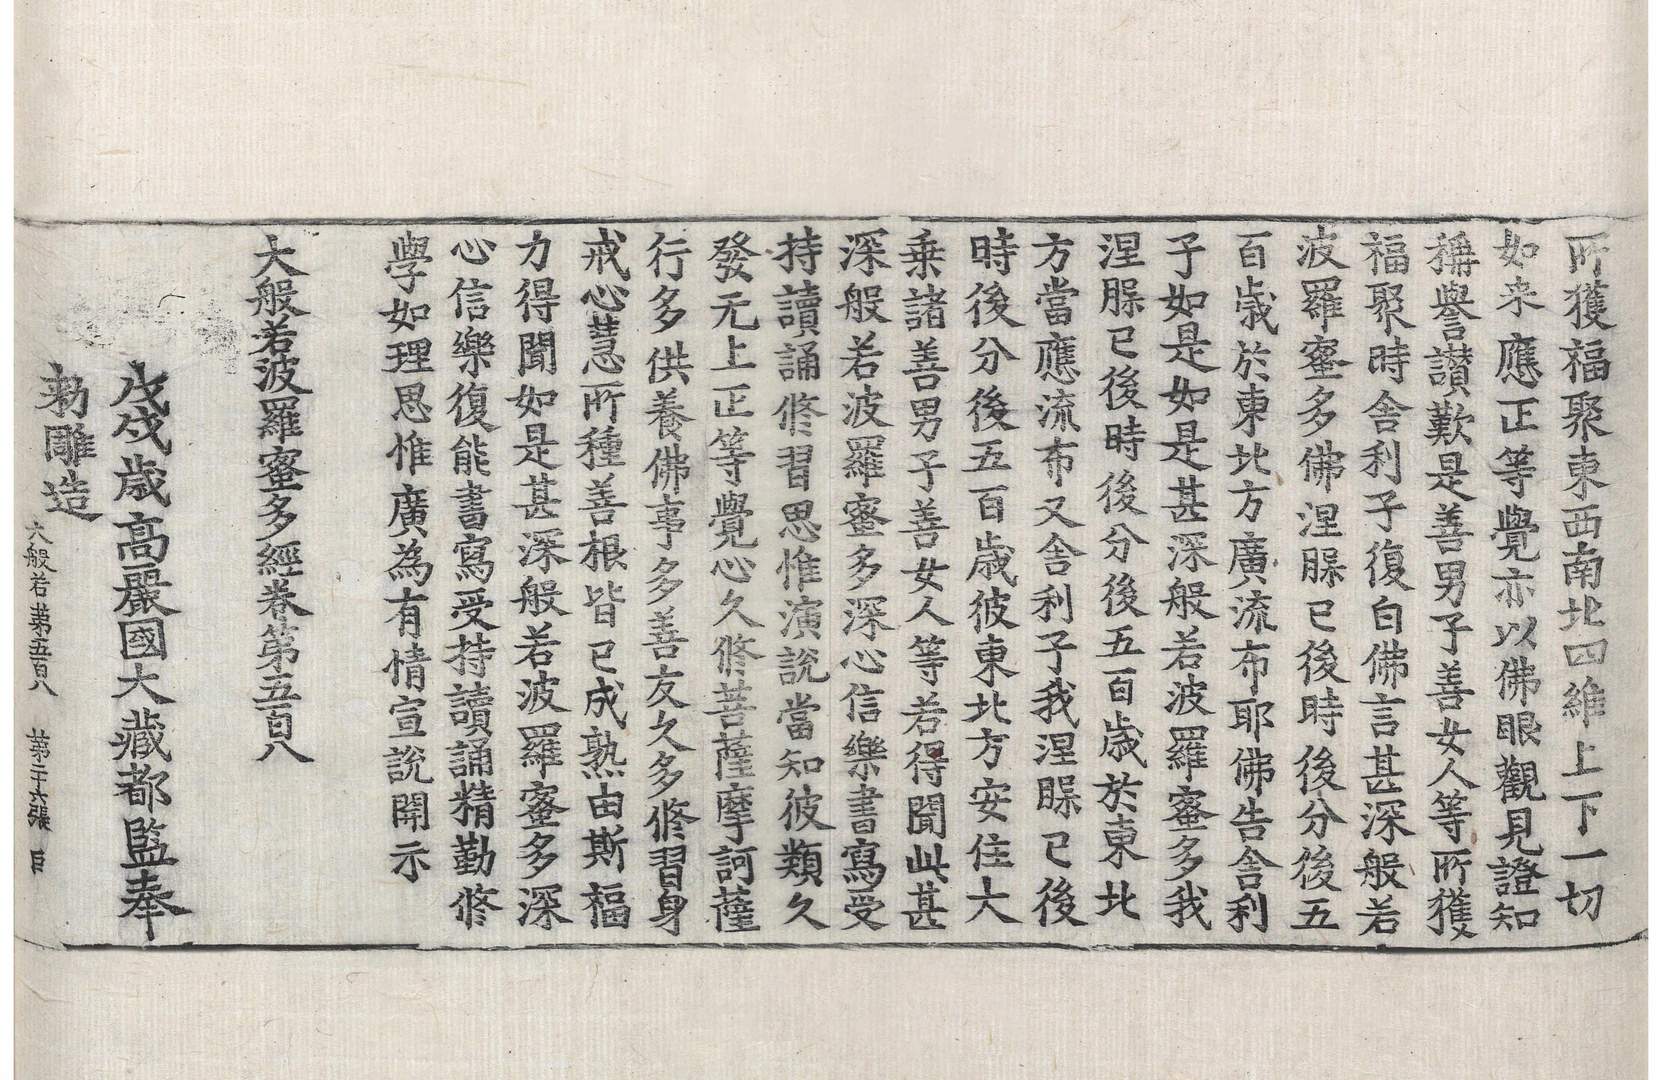 所獲福聚東西南北四維上下一切
如来應正等覺亦以佛眼觀見證知
稱譽讃歎是善男子善女人等所獲
福聚時舍利子復白佛言甚深般若
波羅蜜多佛涅膝已後時後分後五
百歲於東北方廣流布耶佛告舍利
子如是如是甚深般若波羅蜜多我
涅膝已後時後分後五百歲於東北
方當應流布又舍利子我涅膝已後
時後分後五百歲彼東北方安住大
乗諸善男子善女人等若得聞此甚
深般若波羅蜜多深心信樂書寫受
持讀誦修習思惟演說當知彼類久
發无上正等覺心久修菩薩摩訶薩
行多供養佛事多善友久多修習身
戒心慧所種善根皆已成熟由斯福
力得聞如是甚深般若波羅蜜多深
心信樂復能書寫受持讀誦精勤修
學如理思惟廣為有情宣說開示
大般若波羅蜜多經卷第五百八
戊戌歲高麗國大藏都監奉
勅雕造
大般若第五百八 第二十六張